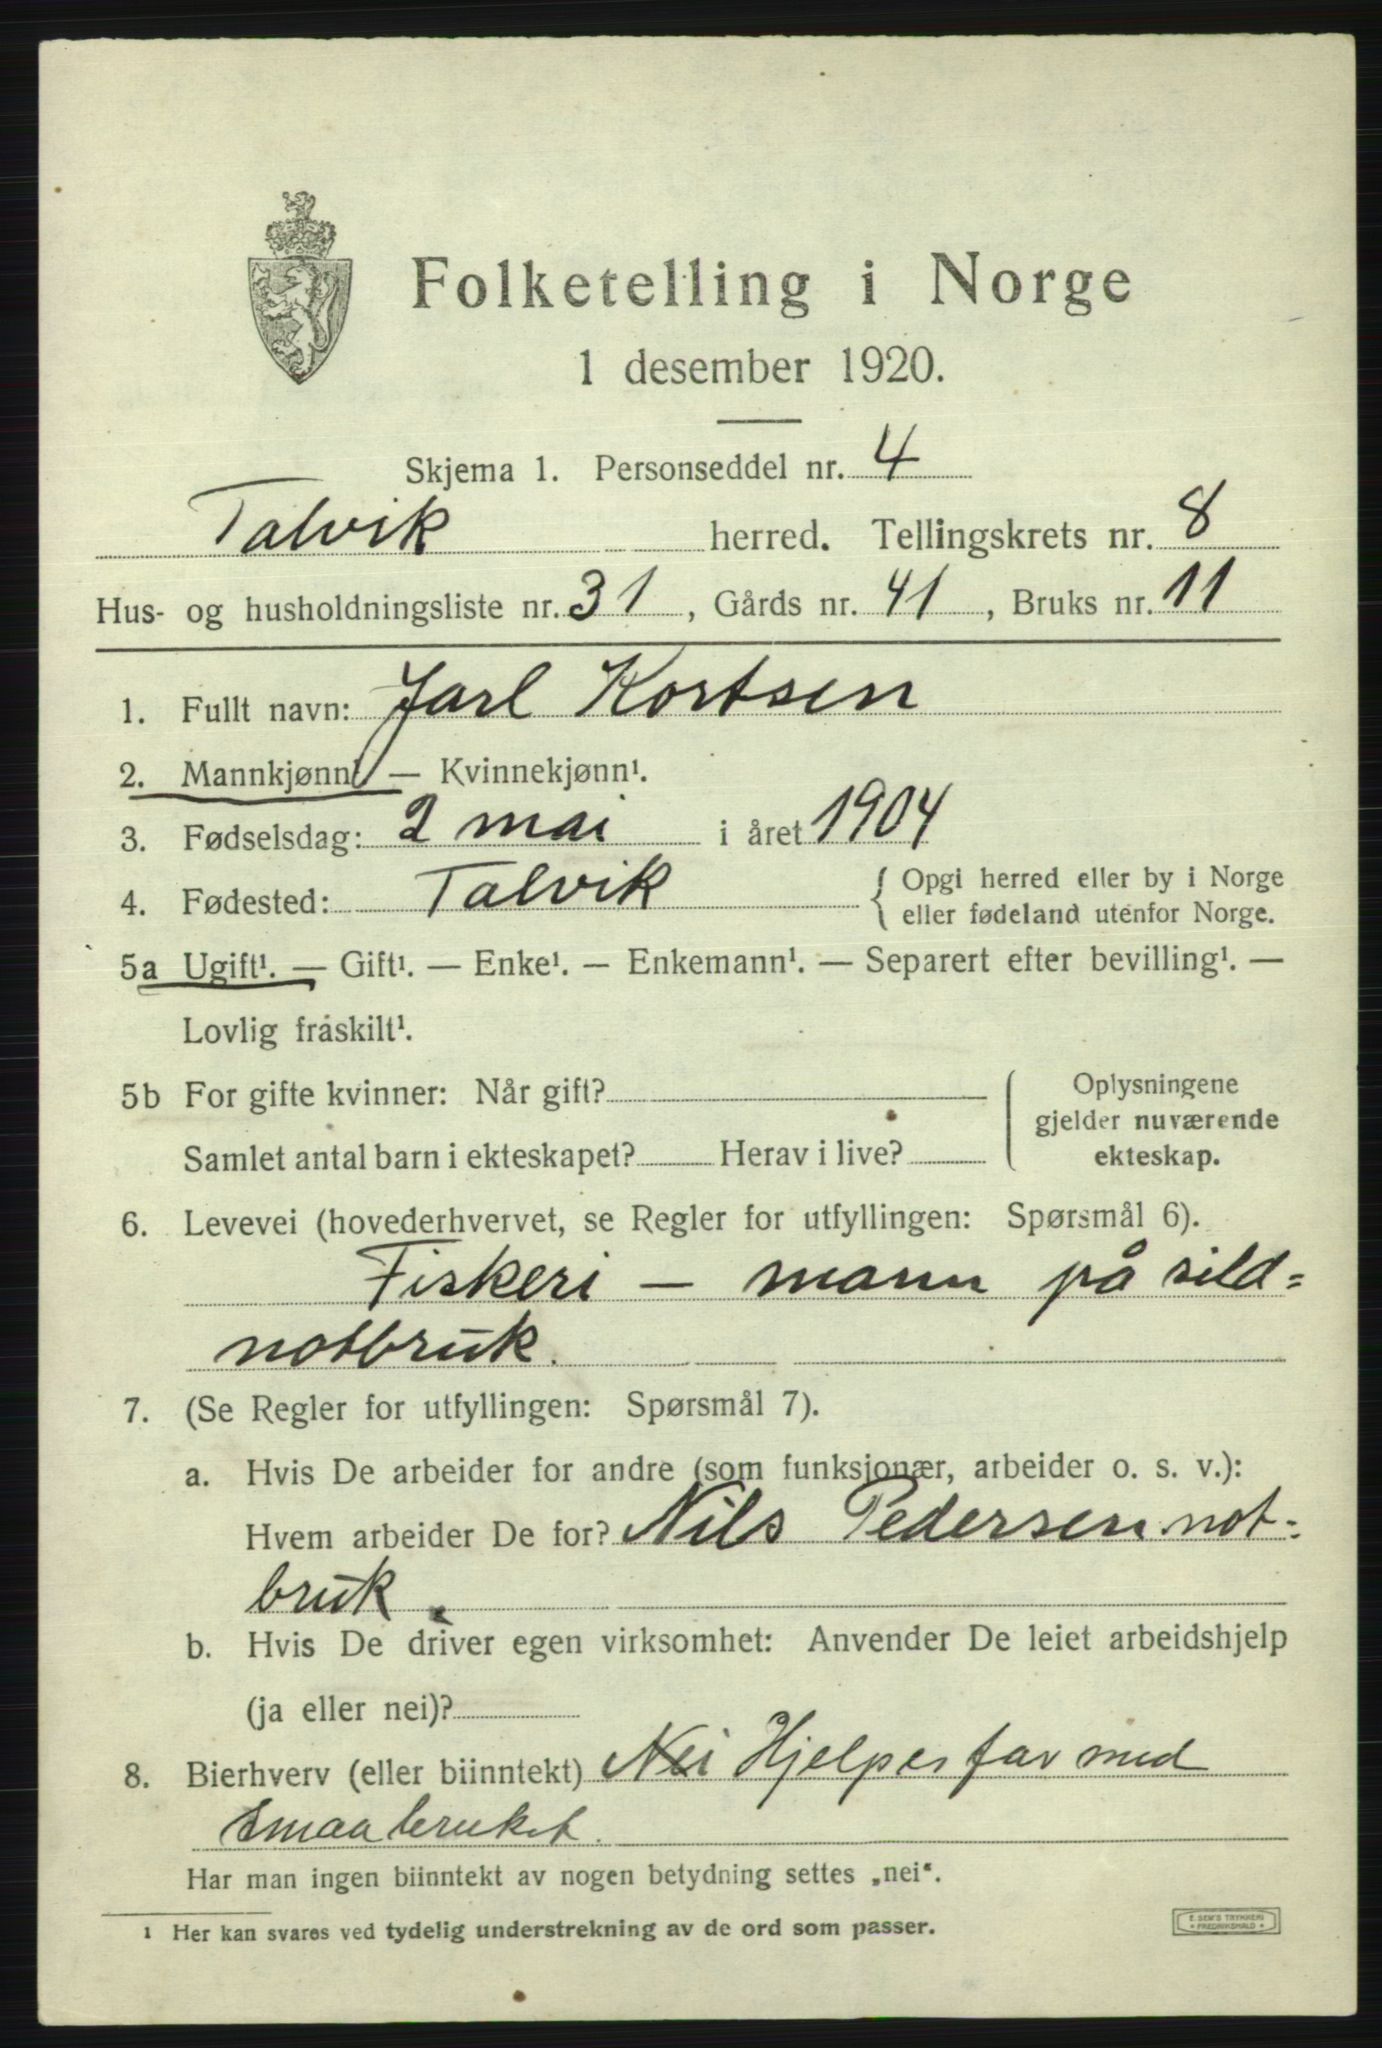 Folketelling i Norge
1 desember 1920.
Skjema 1. Personseddel nr. 4
Talvik herred. Tellingskrets nr. 8
Hus- og husholdningsliste nr. 31, Gårds nr. 41, Bruks nr. 11
1. Fullt navn: Jarl Kortsen
2. Mannkjønn¹ — Kvinnekjønn¹.
3. Fødselsdag: 2 mai i året 1904
4. Fødested: Talvik { Opgi herred eller by i Norge
eller fødeland utenfor Norge.
5a Ugift¹. — Gift¹. — Enke¹. — Enkemann¹. — Separert efter bevilling¹. —
Lovlig fraskilt¹.
5b For gifte kvinner: Når gift?
Oplysningene
gjelder nuværende
ekteskap.
Samlet antal barn i ekteskapet? Herav i live?
6. Levevei (hovederhvervet, se Regler for utfyllingen: Spørsmål 6).
Fiskeri — mann på sild=
notbruk.
7. (Se Regler for utfyllingen: Spørsmål 7).
a. Hvis De arbeider for andre (som funksjonær, arbeider o. s. v.):
Hvem arbeider De for? Nils Pedersen not-
bruk.
b. Hvis De driver egen virksomhet: Anvender De leiet arbeidshjelp
(ja eller nei)?
8. Bierhverv (eller biinntekt) Nei Hjelper far med
Smaabruket.
Har man ingen biinntekt av nogen betydning settes „nei“.
¹ Her kan svares ved tydelig understrekning av de ord som passer.
E. SEM'S TRYKKERI
FREDRIKSHALD